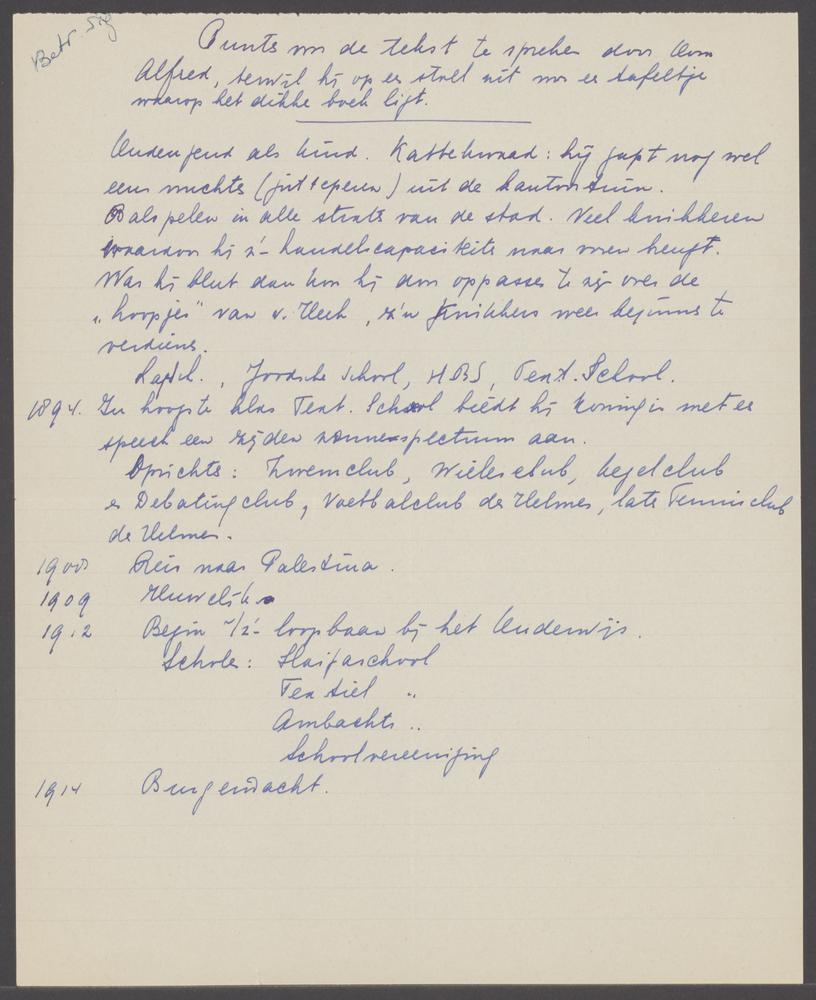 Betr. Sig
Punten voor de tekst te spreken door Oom
Alfred, terwijl hij op een stoel zit voor een tafeltje
waarop het dikke boek ligt.
Ondeugend als kind. Kattekwaad: hij gapt nog wel
eens vruchten (jutteperen) uit de kantoortuin.
Balspelen in alle straten van de stad. Veel knikkeren
waardoor hij z'n handelscapaciteiten naar voren brengt.
Was hij blut dan kon hij door oppasser te zijn over de
"hoopjes" van v. Heek, z'n knikkers weer beginnen te
verdienen.
Joodsche School, HBS, Text. School.
1894. In hoogste klas Text. School biedt hij Koningin met een
speech een zijden zonnespectrum aan.
Oprichter: Zwemclub, Wielerclub, kegelclub
en Debatingclub, Voetbalclub de Helmer, later Tennisclub
de Helmer.
1900 Reis naar Palestina.
1909 Huwelijk
1912 Begin v/z'n loopbaan bij het Onderwijs.
Scholen: Haifaschool
Textiel "
Ambachts "
Schoolvereeniging
1914 Burgerwacht.